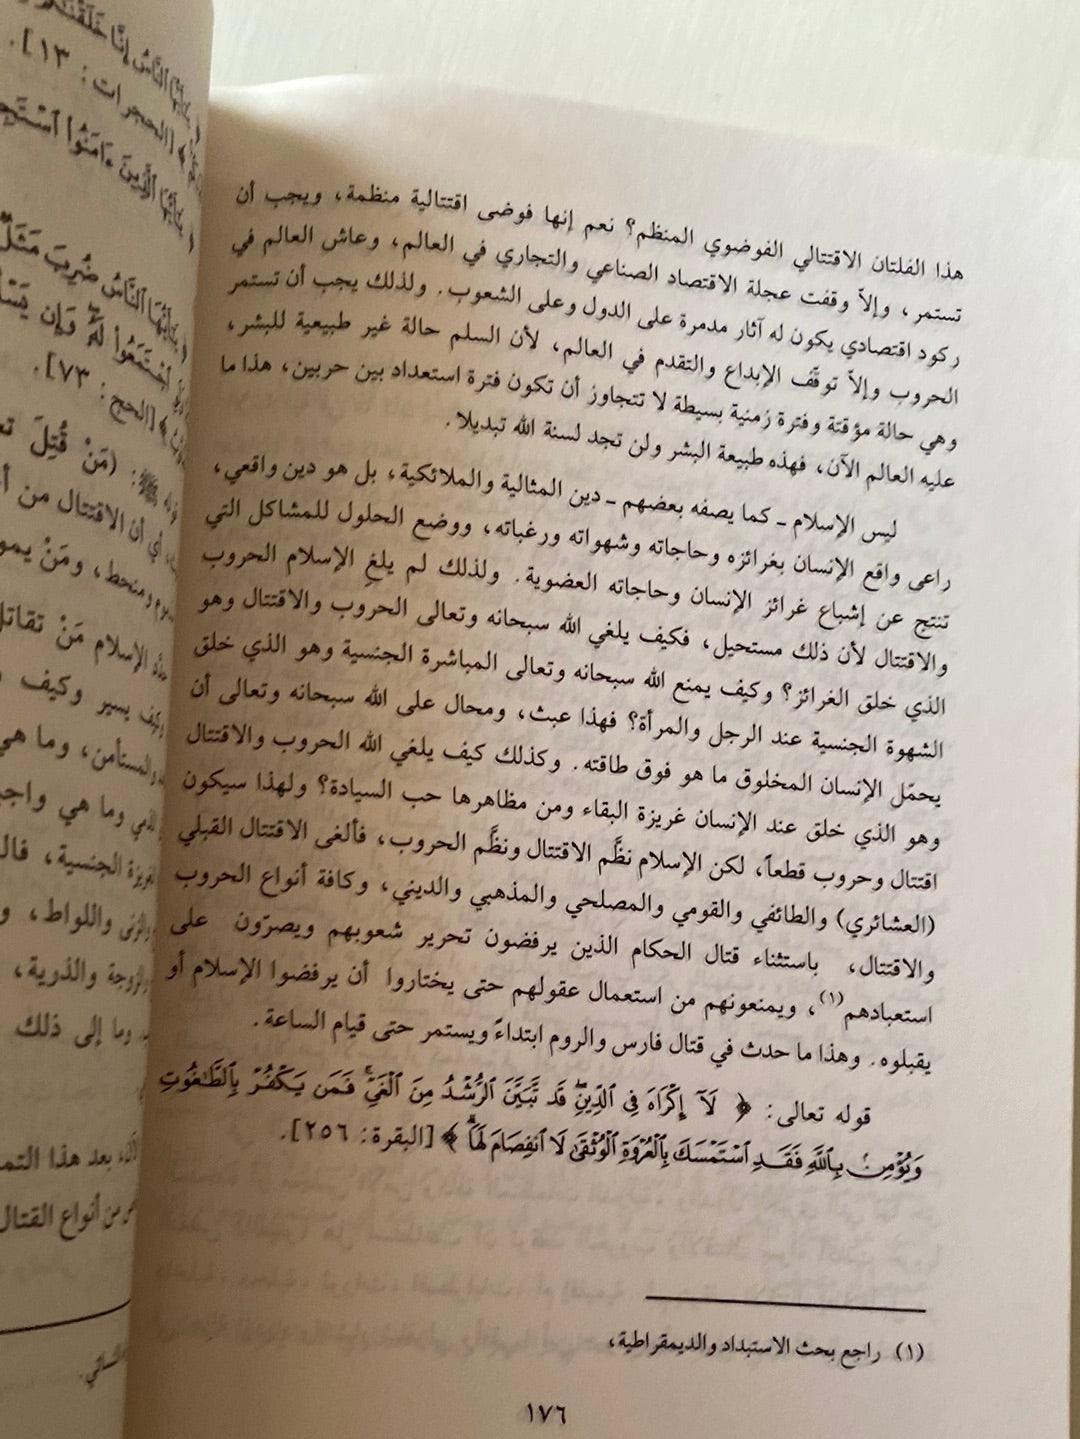 هذا الفلتان الاقتتالي الفوضوي المنظم؟ نعم إنها فوضى اقتتالية منظمة، ويجب أن
تستمر، وإلاّ وقفت عجلة الاقتصاد الصناعي والتجاري في العالم، وعاش العالم في
ركود اقتصادي يكون له آثار مدمرة على الدول وعلى الشعوب. ولذلك يجب أن تستمر
الحروب وإلاّ توقّف الإبداع والتقدم في العالم، لأن السلم حالة غير طبيعية للبشر،
وهي حالة مؤقتة وفترة زمنية بسيطة لا تتجاوز أن تكون فترة استعداد بين حربين، هذا ما
عليه العالم الآن، فهذه طبيعة البشر ولن تجد لسنة الله تبديلا.
ليس الإسلام ـ كما يصفه بعضهم ـ دين المثالية والملائكية، بل هو دين واقعي،
راعى واقع الإنسان بغرائزه وحاجاته وشهواته ورغباته، ووضع الحلول للمشاكل التي
تنتج عن إشباع غرائز الإنسان وحاجاته العضوية. ولذلك لم يلغِ الإسلام الحروب
والاقتتال لأن ذلك مستحيل، فكيف يلغي الله سبحانه وتعالى الحروب والاقتتال وهو
الذي خلق الغرائز؟ وكيف يمنع الله سبحانه وتعالى المباشرة الجنسية وهو الذي خلق
الشهوة الجنسية عند الرجل والمرأة؟ فهذا عبث، ومحال على الله سبحانه وتعالى أن
يحمّل الإنسان المخلوق ما هو فوق طاقته. وكذلك كيف يلغي الله الحروب والاقتتال
وهو الذي خلق عند الإنسان غريزة البقاء ومن مظاهرها حب السيادة؟ ولهذا سيكون
اقتتال وحروب قطعاً، لكن الإسلام نظَّم الاقتتال ونظَّم الحروب، فألغى الاقتتال القبلي
(العشائري) والطائفي والقومي والمصلحي والمذهبي والديني، وكافة أنواع الحروب
والاقتتال، باستثناء قتال الحكام الذين يرفضون تحرير شعوبهم ويصرّون على
استعبادهم(١)، ويمنعونهم من استعمال عقولهم حتى يختاروا أن يرفضوا الإسلام أو
يقبلوه. وهذا ما حدث في قتال فارس والروم ابتداءً ويستمر حتى قيام الساعة.
قوله تعالى: ﴿ لَآ إِكْرَاهَ فِى ٱلدِّينِ ۖ قَد تَّبَيَّنَ ٱلرُّشْدُ مِنَ ٱلْغَىِّ ۚ فَمَن يَكْفُرْ بِٱلطَّٰغُوتِ
وَيُؤْمِنۢ بِٱللَّهِ فَقَدِ ٱسْتَمْسَكَ بِٱلْعُرْوَةِ ٱلْوُثْقَىٰ لَا ٱنفِصَامَ لَهَا ۗ ﴾ [البقرة: ٢٥٦].
(١) راجع بحث الاستبداد والديمقراطية،
١٧٦